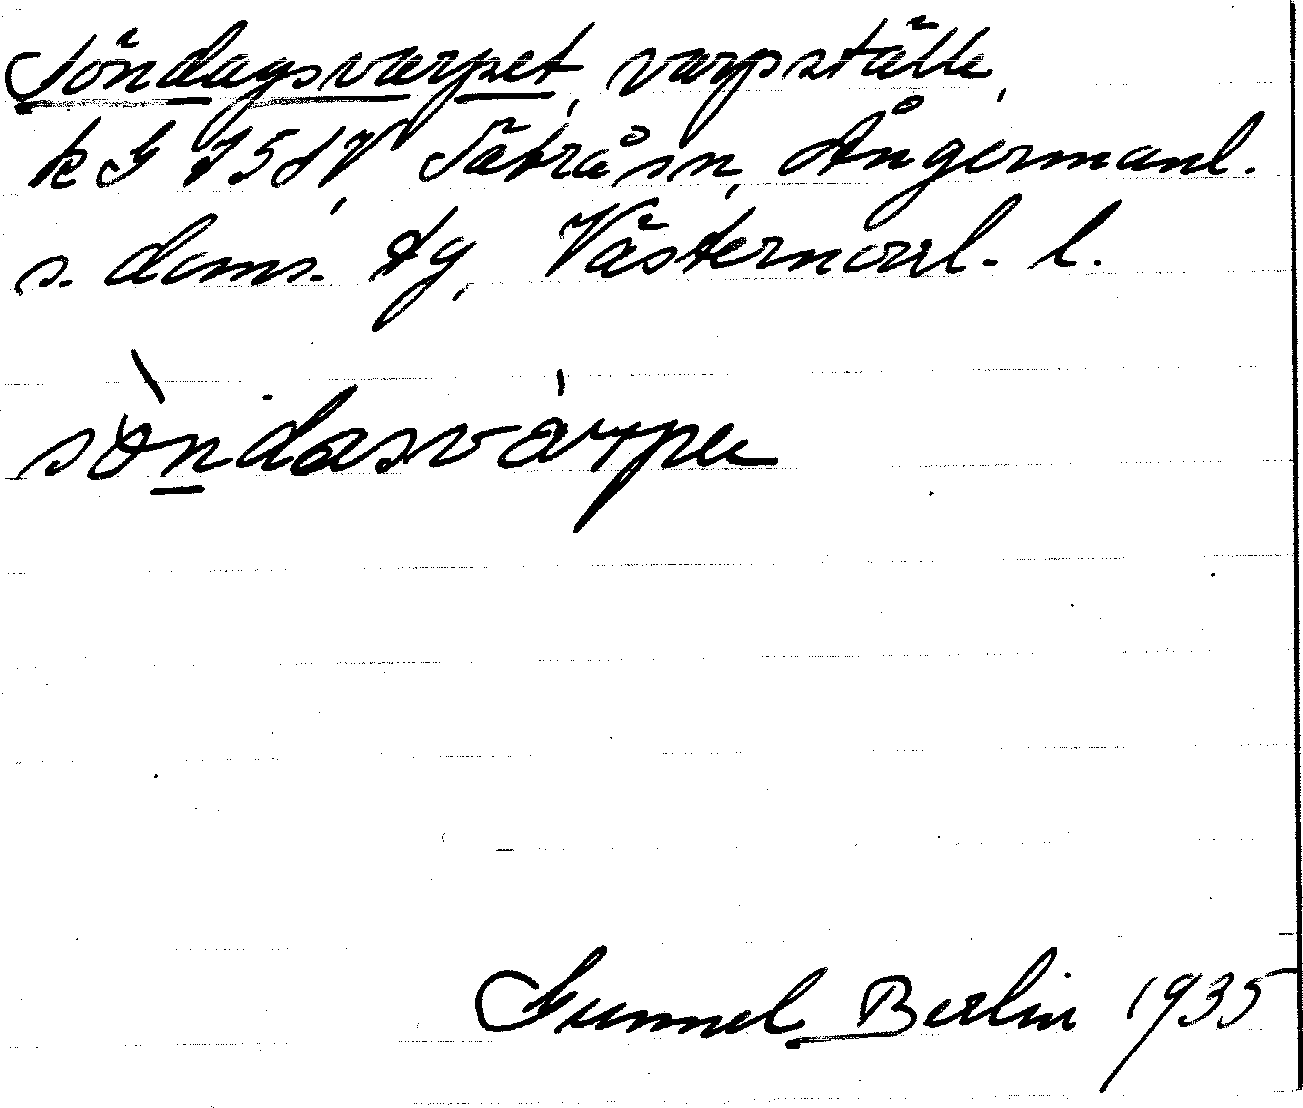 Söndagsvarpet, varpställe,
k G 7517, Säbrå sn, Ångermanl.
s. doms. tg, Västernorrl. l.
sön̲dasvárpe
Gunnel Berlin 1935